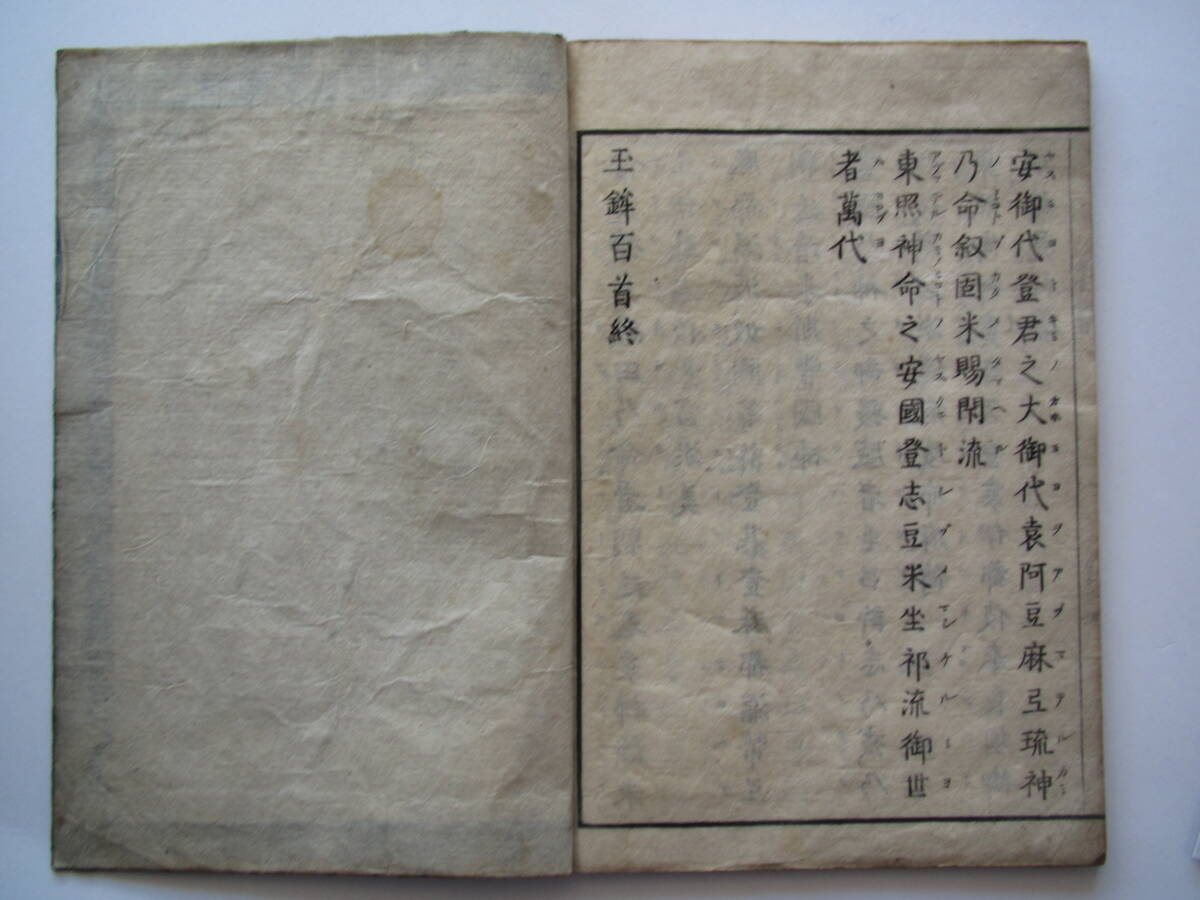 安御代登君之大御代袁阿豆麻弖琉神
乃命叙固米賜閇流
東照神命之安國登志豆米坐祁流御世
者萬代
玉鉾百首終